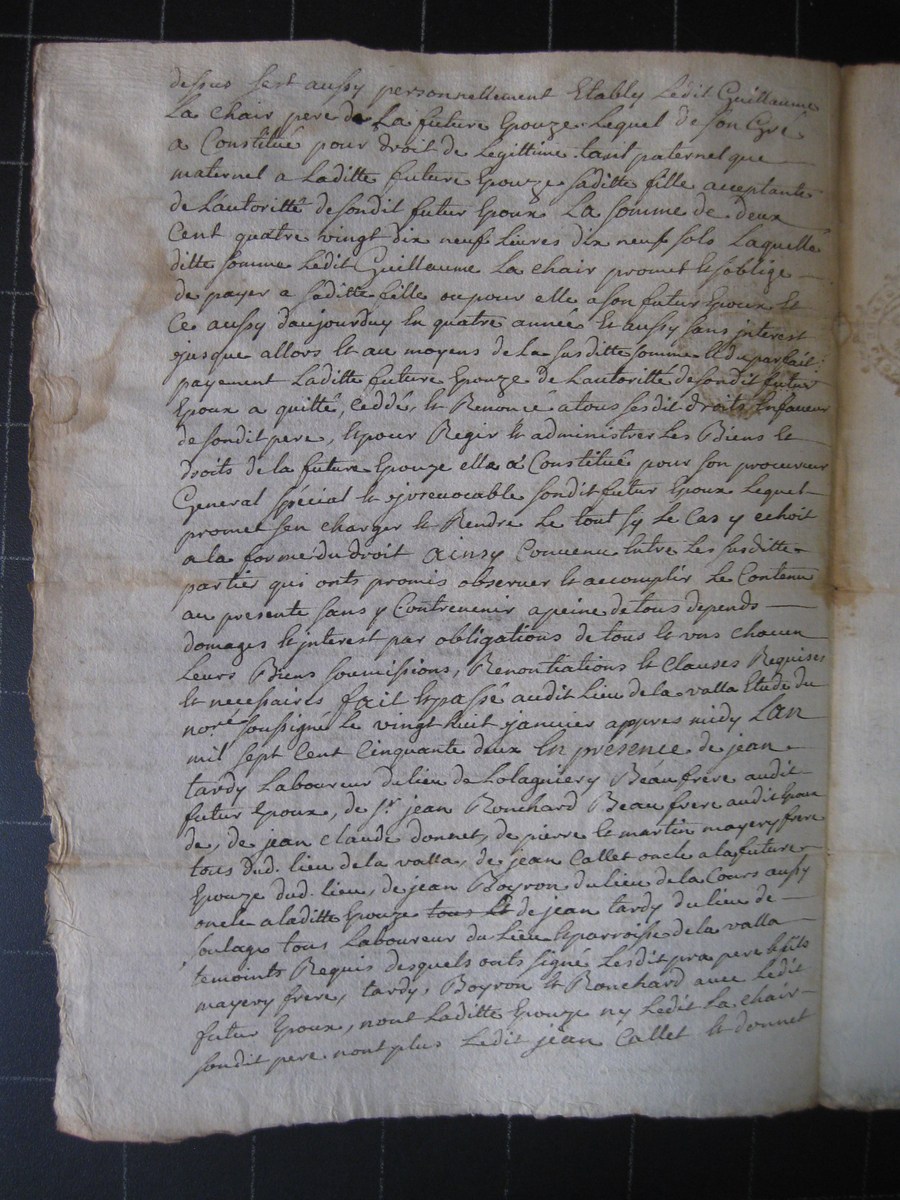 dessus s'est aussy personnellement Etably Ledit Guillaume
La chair pere de La future Epouze Lequel de son Gré
a Constitué pour droit de Legittime tant paternel que
maternel a Laditte future Epouze saditte fille acceptante
de L'autoritté de sondit futur Epoux La somme de deux
Cent quatre vingt dix neuf Livres dix neuf sols Laquelle
ditte somme Ledit Guillaume La chair promet et s'oblige
de payer a saditte fille ou pour elle a son futur Epoux Et
Ce aussy daujourduy En quatre année Et aussy sans interest
jusque allors Et au moyens de La susditte somme Et du parfait
payement Laditte future Epouze de L'autoritté de sondit futur
Epoux a quitté, Ceddé, et Renoncé a tous sesdit droits En faveur
de sondit pere, Et pour Regir Et administrer Les Biens Et
droits de la future Epouze elle a Constitué pour son procureur
General special Et jrrevocable sondit futur Epoux Lequel
promet s'en charger Et Rendre Le tout sy Le Cas y echoit
a la forme du droit ainsy Convenu Entre Les susditte
partie qui onts promis observer Et accomplir Le Contenu
au presente sans y Contrevenir a peine de tous depends
domages Et interest par obligations de tous Et uns chacun
Leurs Biens soumissions, Renontiations Et Clauses Requises
Et necessaires fait Et passé audit Lieu de la valla Etude du
no.re soussigné Le vingt huit janvier appres midy L'an
mil sept Cent Cinquante deux En presence de jean
tardy Laboureur du lieu de Beau frere audit
futur Epoux, de Sr. jean Ronchard Beau frere audit Epoux
de, de jean claude donnet, de pierre Et martin mayery frere
tous dud. lieu de la valla, de jean Callet oncle a la future
Epouze dud. lieu, de jean Boyron du lieu de la Cours aussy
oncle a laditte Epouze tous Et de jean tardy du lieu de
soulage tous Laboureur du Lieu Et parroisse de la valla
temoints Requis desquels onts signé Lesdit
mayery frere, tardy, Boyron Et Ronchard avec Ledit
futur Epoux, nont Laditte Epouze ny Ledit La chair
sondit pere non plus Ledit jean Callet Et donnet